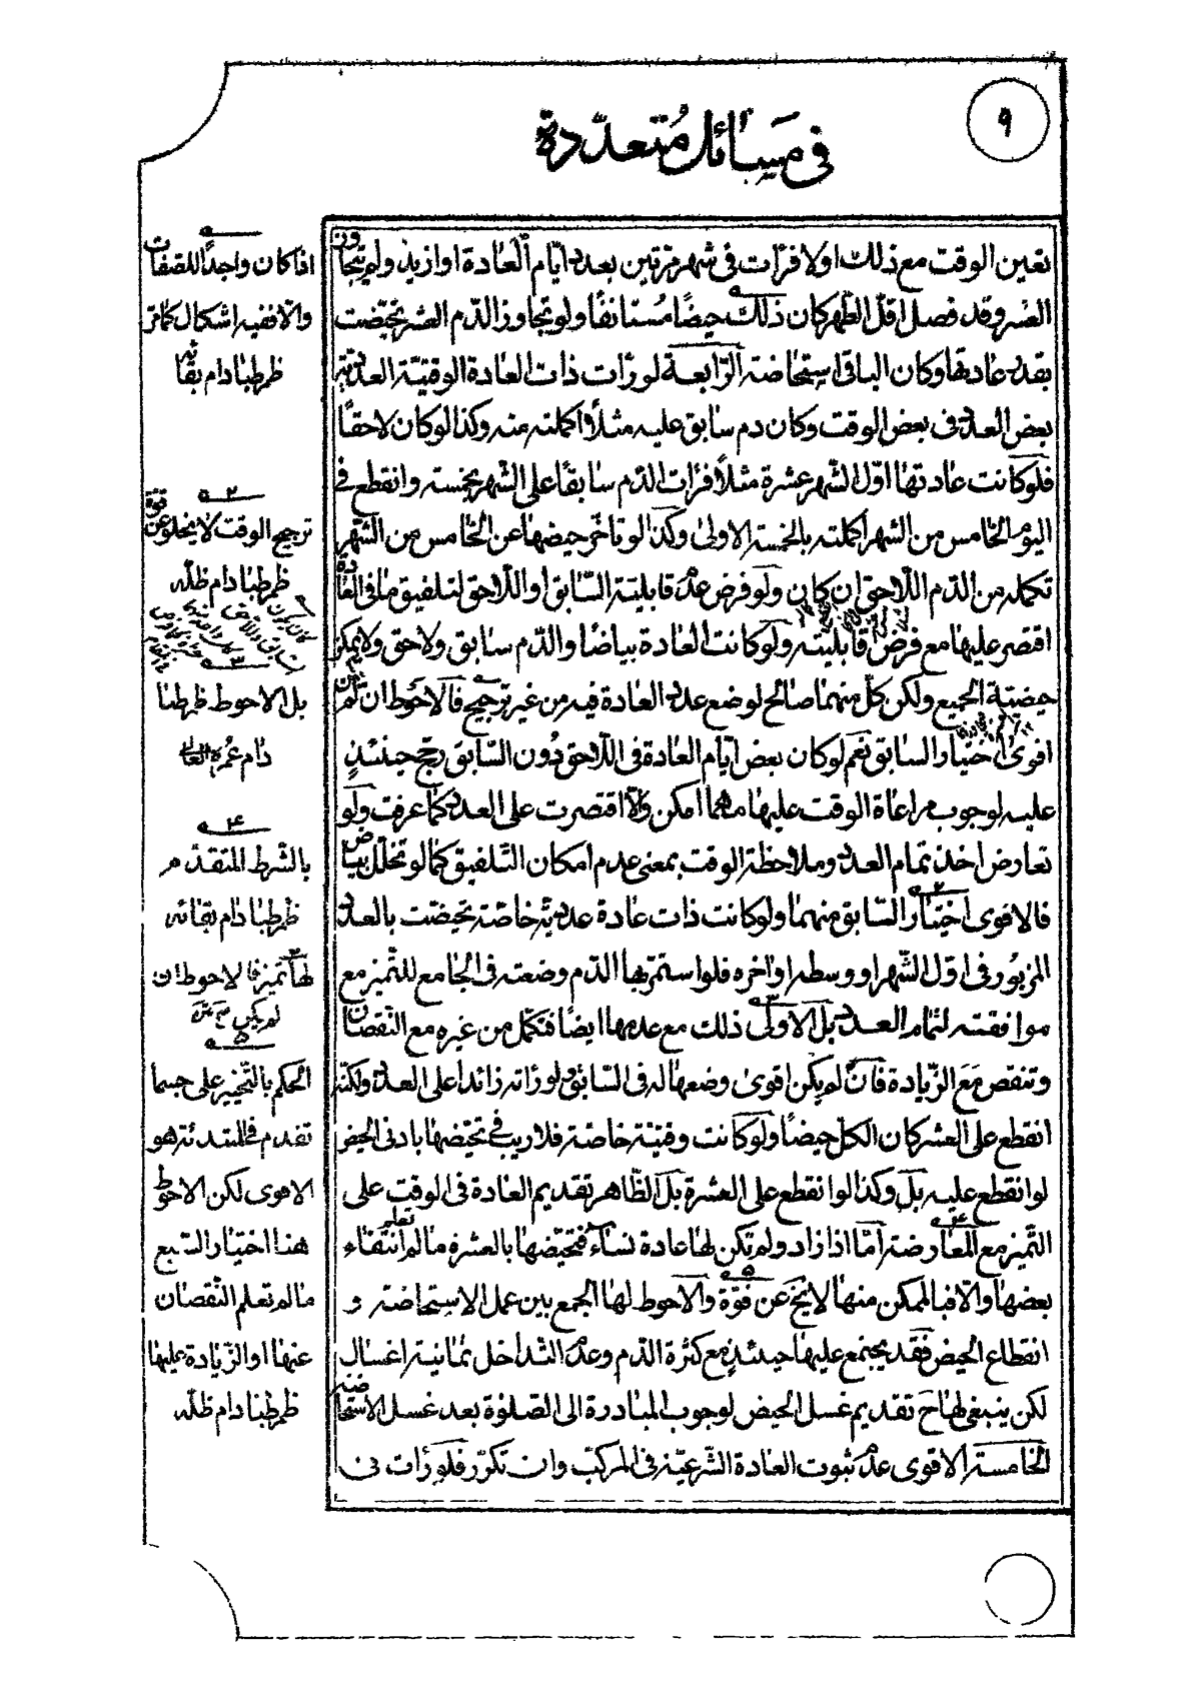 ٩
في مسائل متعددة
تعين الوقت مع ذلك اولا فرات في شهر مرتين بعدد ايام العادة او ازيد ولم يتجاوز
العشر وقد فصل اقل الطهر كان ذلك حيضًا مستانفًا ولو تجاوز الدّم العشر تحيّضت
بقدر عادتها وكان الباقي استحاضة الرّابعة لو رأت ذات العادة الوقتيّة العدديّة
بعض العدد في بعض الوقت وكان دم سابق عليه مثلًا اكملته منه وكذا لو كان لاحقًا
فلو كانت عادتها اوّل الشّهر عشرة مثلًا فرأت الدّم سابقًا على الشّهر بخمسة وانقطع في
اليوم الخامس من الشهر اكملته بالخمسة الاولى وكذا لو تاخّر حيضها عن الخامس من الشّهر
تكمله من الدّم اللّاحق ان كان ولو فرض عدم قابليّة السّابق او اللّاحق لتلفيق ما في العادة
اقتصر عليها مع فرض قابليته ولو كانت العادة بياضًا والدّم سابق ولاحق ولا يمكن
حيضيّة الجميع ولكن كلّ منهما صالح لوضع عدد العادة فيه من غير ترجيح فالاحوط ان لم يكن
اقوى اختيار السابق نعم لو كان بعض ايّام العادة في اللّاحق دون السّابق رجّح حينئذٍ
عليه لوجوب مراعاة الوقت عليها مهما امكن والّا اقتصرت على العدد كما عرفت ولو
تعارض اخذ تمام العدد وملاحظة الوقت بمعنى عدم امكان التّلفيق كما لو تخلّل بياض
فالاقوى اختيار السّابق منهما ولو كانت ذات عادة عدديّة خاصّة تحيّضت بالعدد
المزبور في اوّل الشّهر او وسطه او اخره فلو استمرّ بها الدّم وضعته في الجامع للتّميز مع
موافقته لتمام العدد بل الاولى ذلك مع عدمها ايضًا فتكمل من غيره مع النّقصان
وتنقص مع الزّيادة فان لم يكن اقوى وضعها له في السّابق ولو رأته زائدا على العدد ولكنّه
انقطع على العشر كان الكل حيضًا ولو كانت وقتيّة خاصّة فلا ريب في تحيّضها بادنى الحيض
لو انقطع عليه بل وكذا لو انقطع على العشرة بل الظّاهر تقديم العادة في الوقت على
التّميز مع المعارضة امّا اذا زاد ولم تكن لها عادة نساء فتحيّضها بالعشرة ما لم تعلم انتفاء
بعضها والّا فبالممكن منها لا يخ عن قوّة والاحوط لها الجمع بين عمل الاستحاضة و
انقطاع الحيض فقد يجتمع عليها حينئذٍ مع كثرة الدّم وعدم التّداخل ثمانية اغسال
لكن ينبغي لها ح تقديم غسل الحيض لوجوب المبادرة الى الصّلوة بعد غسل الاستحاضة
الخامسة الاقوى عدم ثبوت العادة الشّرعيّة في المركّب وان تكرّر فلو رأت في
اذا كان واجدًا للصّفات
والّا ففيه اشكال كما مر
ظم طبا دام بقائه
٢
ترجيح الوقت لا يخلو عن قوة
ظم طبا دام ظلّه
٣
بل الاحوط ظم طبا
دام عمره العالي
٤
بالشّرط المتقدّم
ظم طبا دام بقائه
لها تميز فالاحوط ان
لم يكن
٥
الحكم بالتّخيير على حسبما
تقدم في المبتدئة هو
الاقوى لكن الاحوط
هنا اختيار السّبع
ما لم تعلم النّقصان
عنها او الزّيادة عليها
ظم طبا دام ظلّه